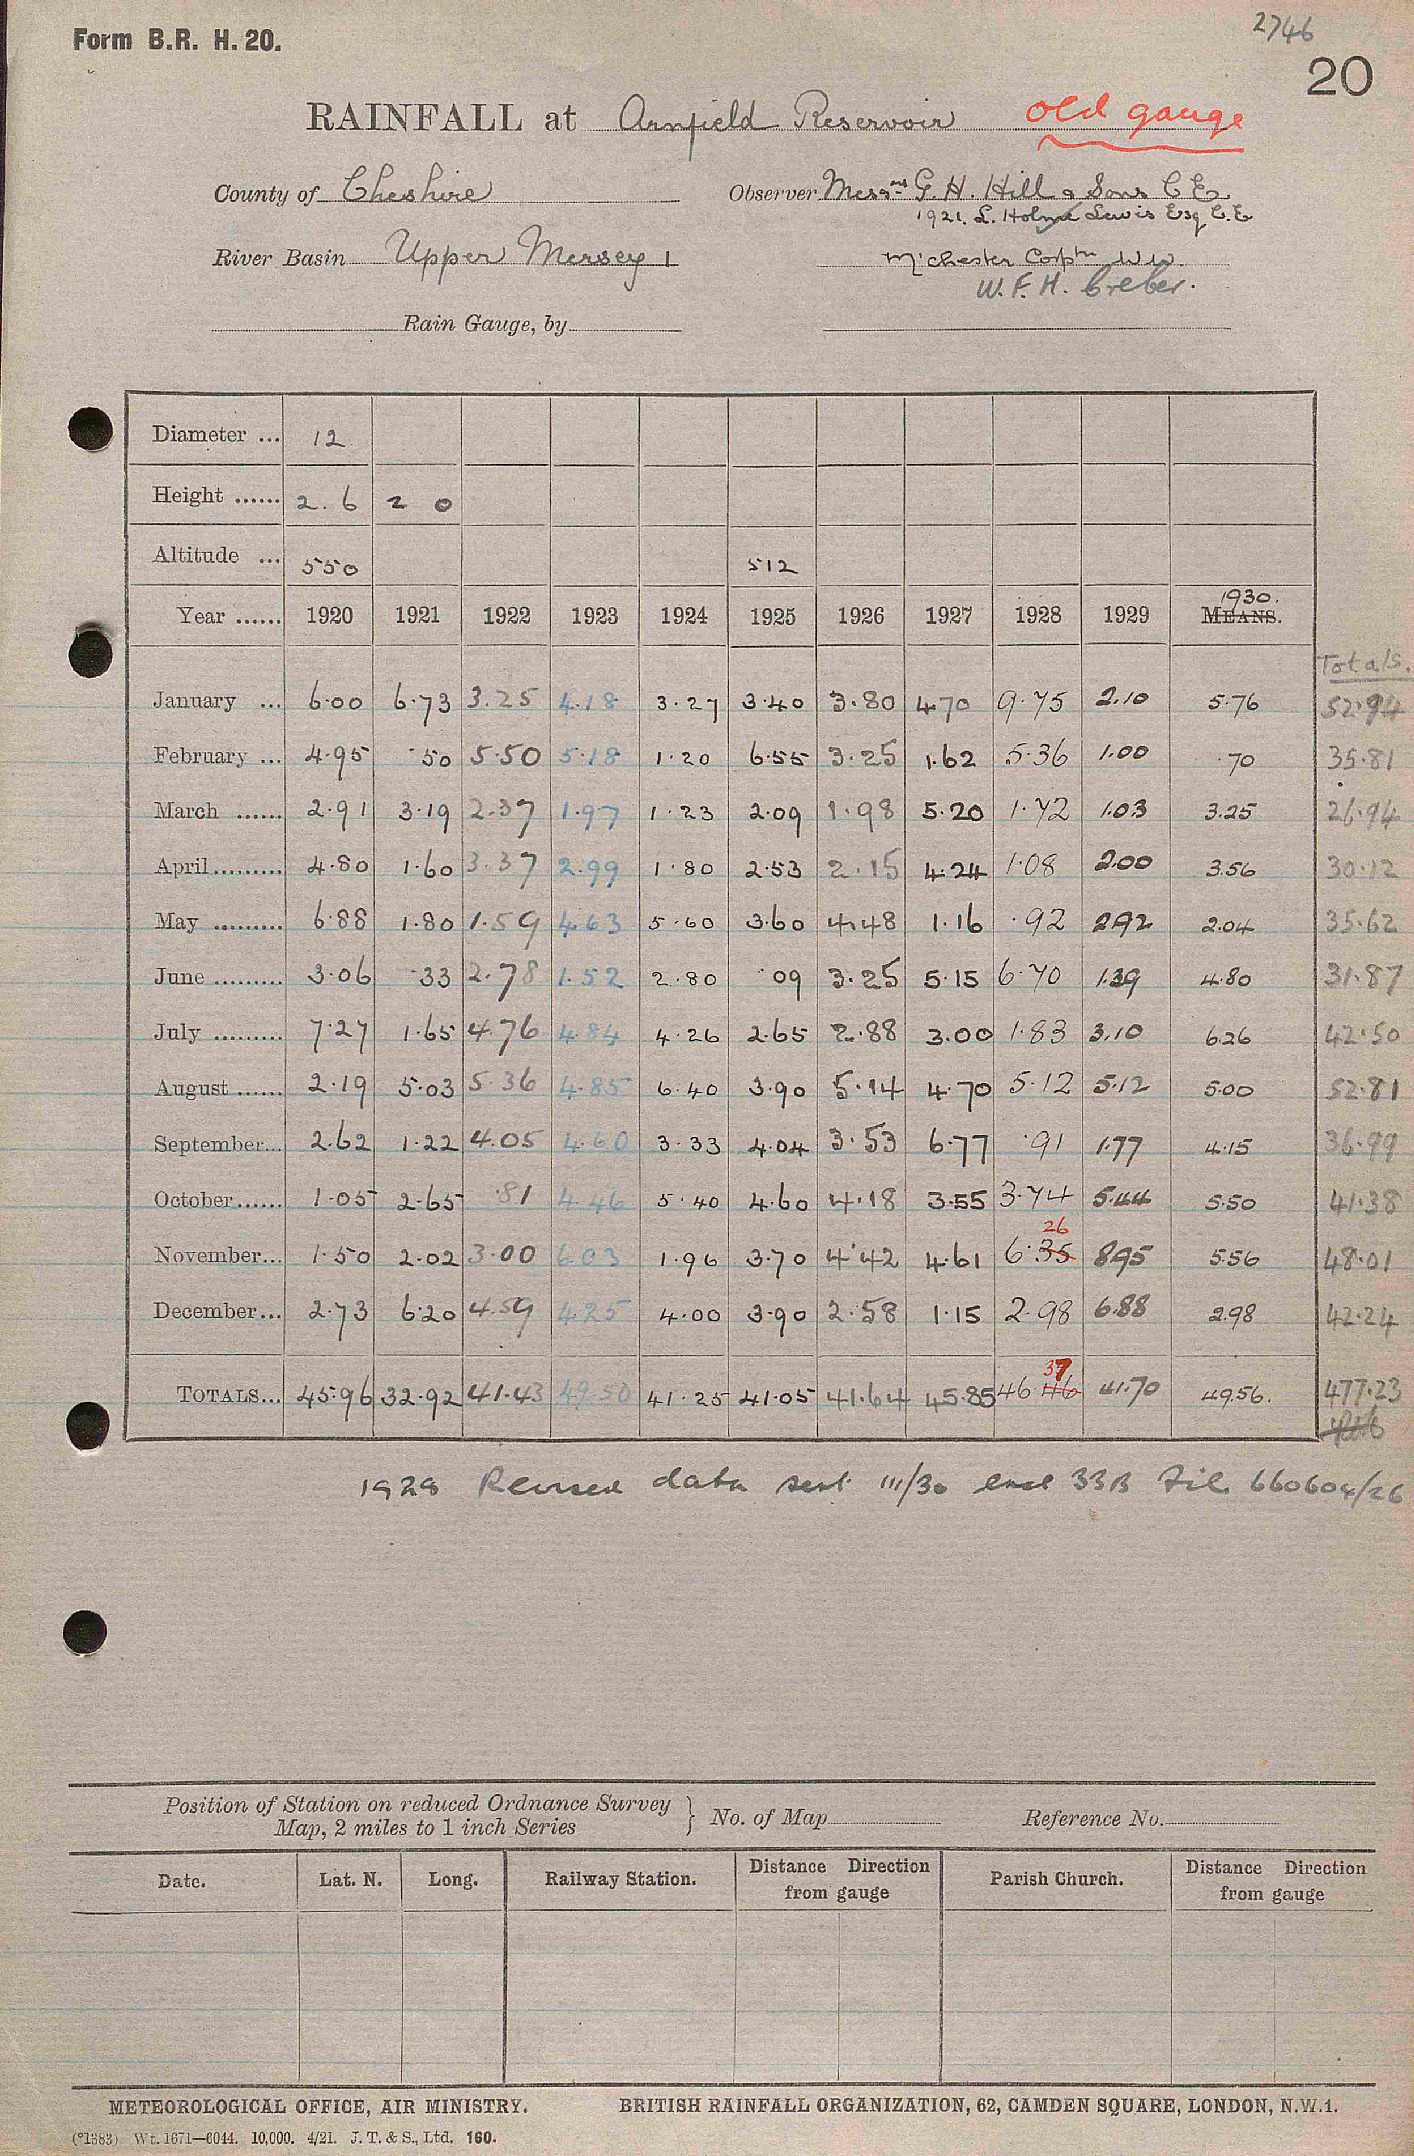 Form B.R. H. 20.
2746
20
RAINFALL at Arnfield Reservoir old gauge
County of Cheshire Observer Messrs G. H. Hill & Sons C E.
1921. L. Holme Lewis Esq C.E.
River Basin Upper Mersey 1 M'chester Corptn W.W.
W. F. H. Creber.
Rain Gauge, by
Diameter ... 12
Height ...... 2.6 2 0
Altitude ... 550 512
1930.
Year ...... 1920 1921 1922 1923 1924 1925 1926 1927 1928 1929 MEANS.
Totals.
January ... 6.00 6.73 3.25 4.18 3.27 3.40 3.80 4.70 9.75 2.10 5.76 52.94
February ... 4.95 .50 5.50 5.18 1.20 6.55 3.25 1.62 5.36 1.00 .70 35.81
March ...... 2.91 3.19 2.37 1.97 1.23 2.09 1.98 5.20 1.72 1.03 3.25 26.94
April ......... 4.80 1.60 3.37 2.99 1.80 2.53 2.15 4.24 1.08 2.00 3.56 30.12
May ......... 6.88 1.80 1.59 4.63 5.60 3.60 4.48 1.16 .92 2.92 2.04 35.62
June ......... 3.06 .33 2.78 1.52 2.80 .09 3.25 5.15 6.70 1.39 4.80 31.87
July ......... 7.27 1.65 4.76 4.84 4.26 2.65 2.88 3.00 1.83 3.10 6.26 42.50
August ...... 2.19 5.03 5.36 4.85 6.40 3.90 5.14 4.70 5.12 5.12 5.00 52.81
September... 2.62 1.22 4.05 4.60 3.33 4.04 3.53 6.77 .91 1.77 4.15 36.99
October...... 1.05 2.65 .81 4.46 5.40 4.60 4.18 3.55 3.74 5.44 5.50 41.38
26
November... 1.50 2.02 3.00 6.03 1.96 3.70 4.42 4.61 6.35 8.95 5.56 48.01
December... 2.73 6.20 4.59 4.25 4.00 3.90 2.58 1.15 2.98 6.88 2.98 42.24
37
TOTALS... 45.96 32.92 41.43 49.50 41.25 41.05 41.64 45.85 46.46 41.70 49.56. 477.23
1928 Revised data sent 1/1/30 encl 33B File 660604/26
Position of Station on reduced Ordnance Survey
Map, 2 miles to 1 inch Series } No. of Map Reference No.
Date. Lat. N. Long. Railway Station. Distance Direction from gauge Parish Church. Distance Direction from gauge
METEOROLOGICAL OFFICE, AIR MINISTRY. BRITISH RAINFALL ORGANIZATION, 62, CAMDEN SQUARE, LONDON, N.W.1.
(*1383) Wt. 1671—6044. 10,000. 4/21. J. T. & S., Ltd. 160.